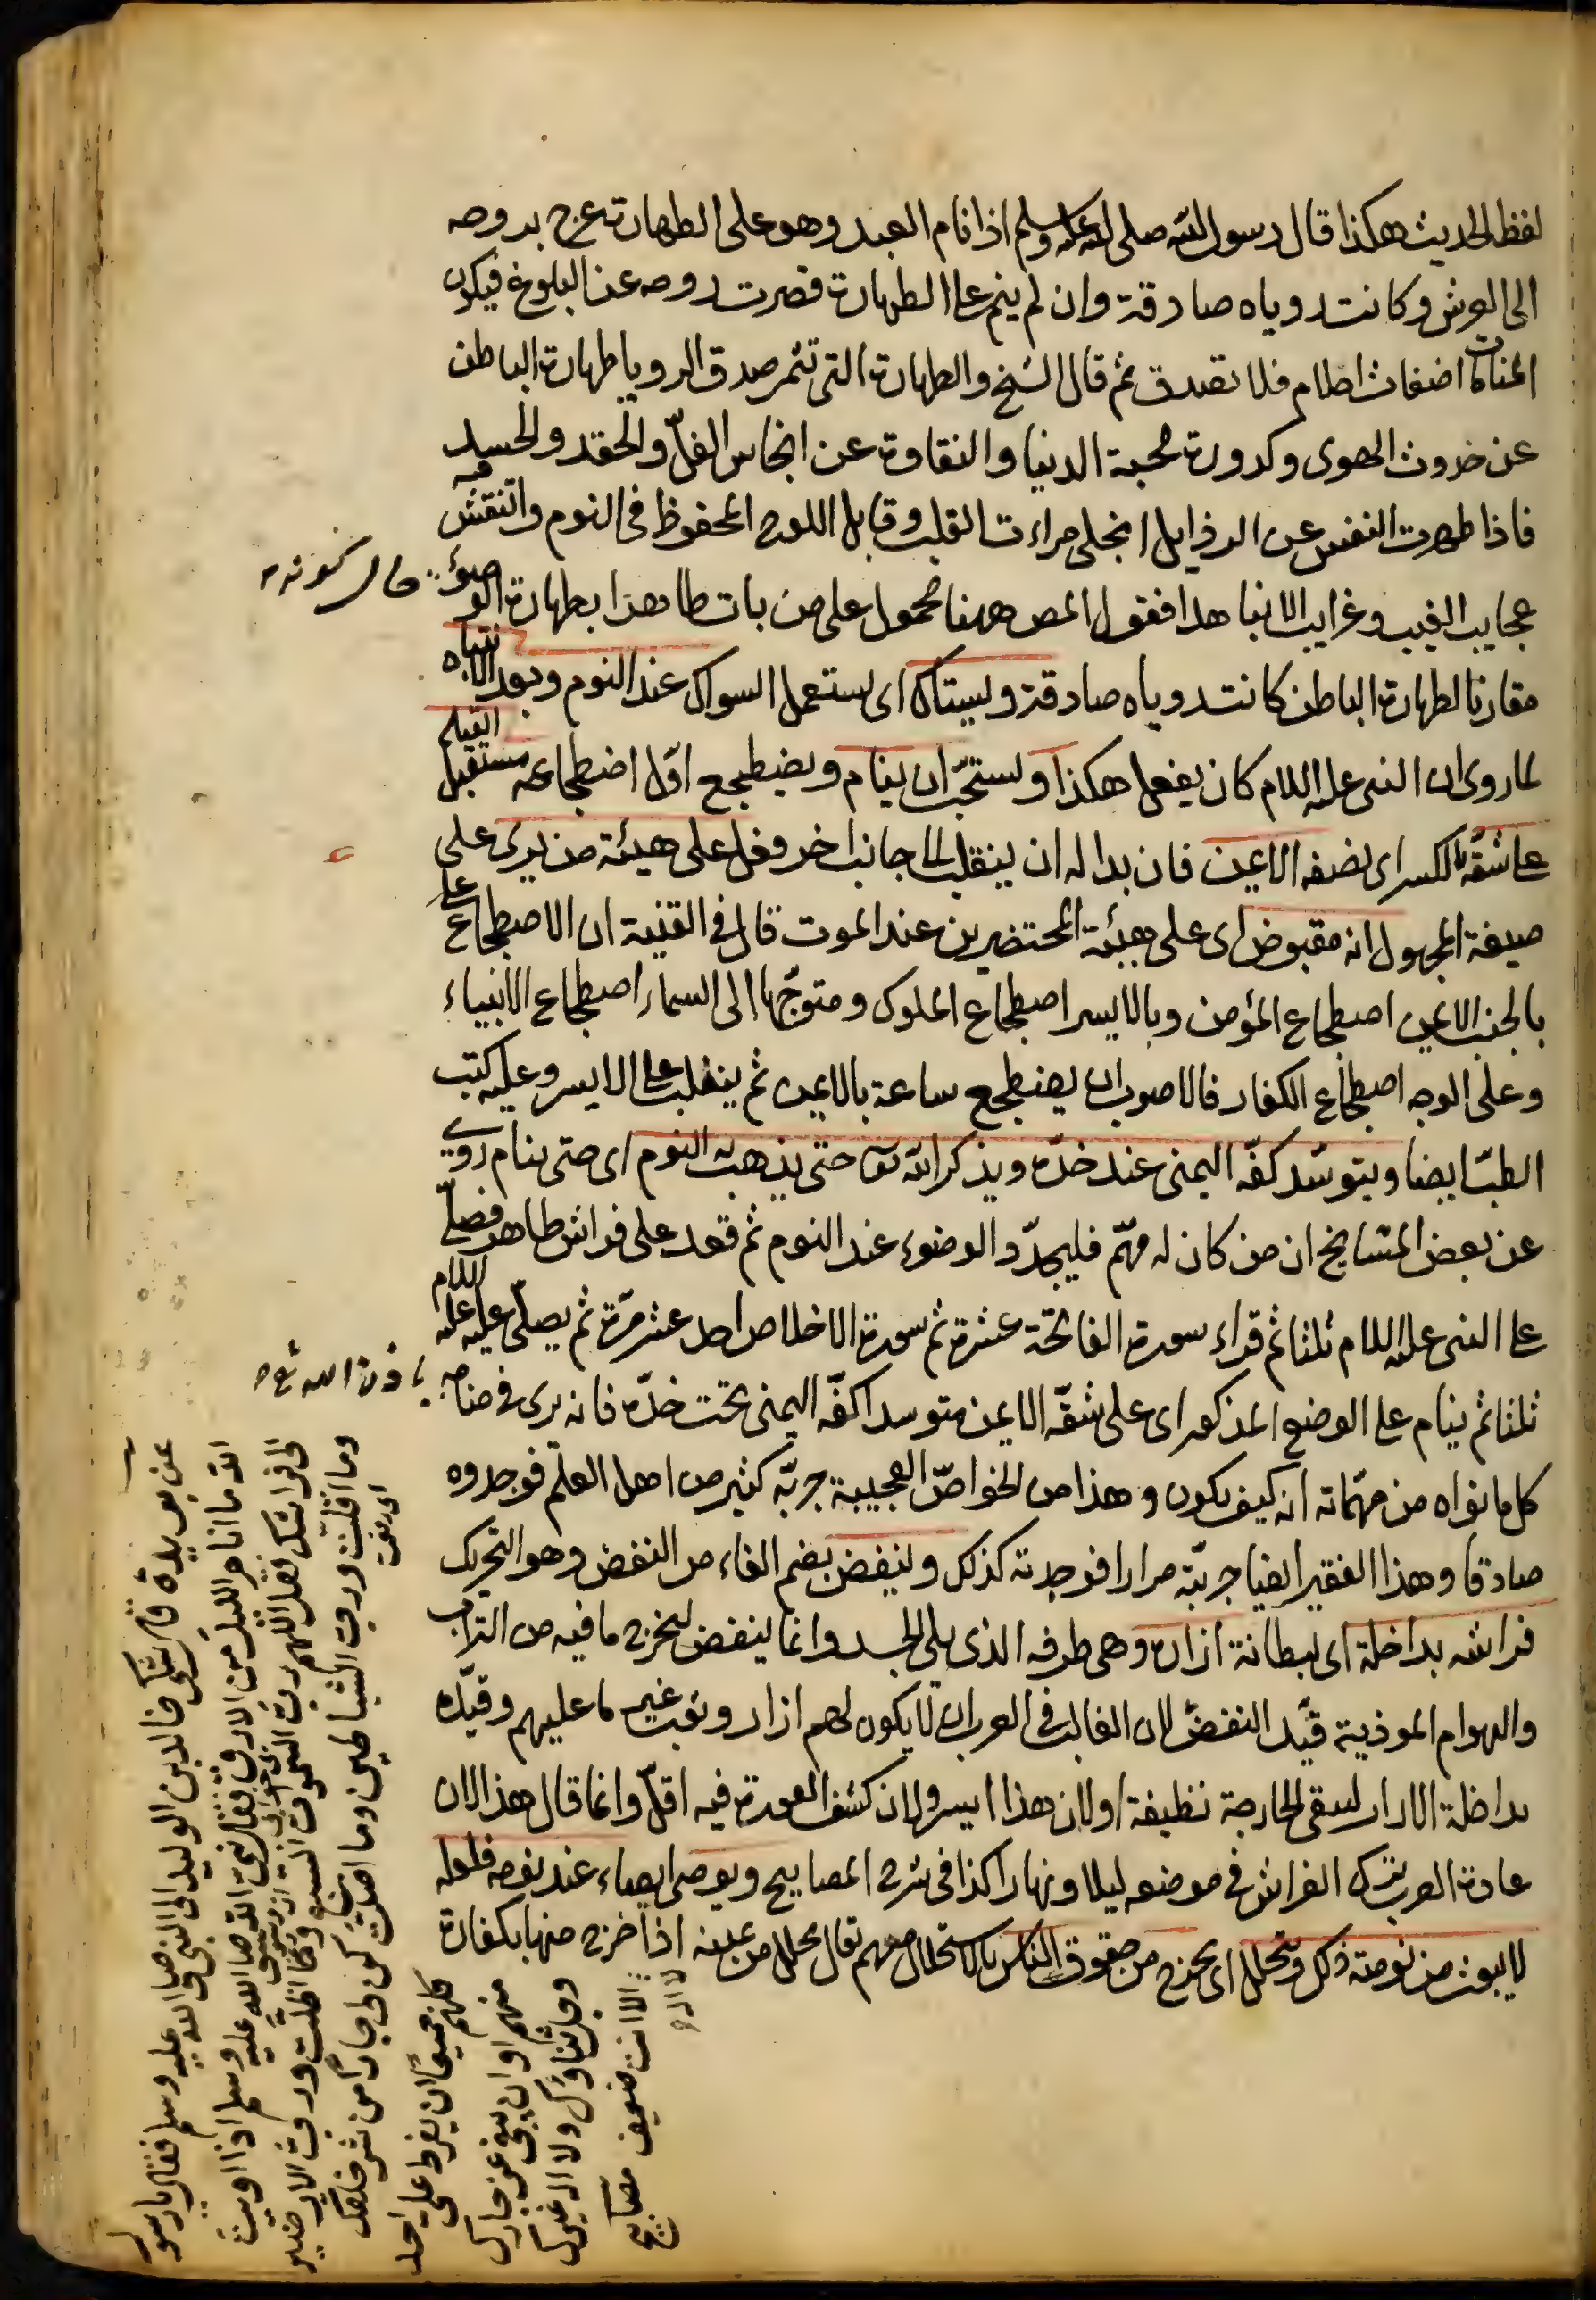 لفظ الحديث هكذا قال رسول الله صلى الله عليه وسلم اذا نام العبد وهو على الطهارة عرج بروحه
الى العرش وكانت روياه صادقة وان لم ينم على الطهارة قصرت روحه عن البلوغ فيكون
المنامات اضغاث احلام فلا تصدق ثم قال الشيخ والطهارة التى تثمر صدق الرويا طهارة الباطن
عن خدوش الهوى وكدورة محبة الدنيا والنقاوة عن انجاس الغلّ والحقد والحسد
فاذا طهرت النفس عن الرذايل انجلى مراءت القلب وقابل اللوح المحفوظ فى النوم وانتقش فيه
عجايب الغيب وغرايب الانبا هذا فقول المص ههنا محمول على من بات طاهرا بطهارة الوضوء
حال كونه
مقارنا لطهارة الباطن كانت روياه صادقة ويستاك اى يستعمل السواك عند النوم وبعد الانتباه
لما روى ان النبى عليه السلام كان يفعل هكذا ويستحبّ ان ينام ويضطجع اوّل اضطجاعه مستقبل القبلة
على شقّه بالكسر اى نصفه الايمن فان بدا له ان ينقلب الى جانب اخر فعل على هيئة من يرى على
صيغة المجهول انه مقبوض اى على هيئة المحتضرين عند الموت قال فى القنية ان الاضطجاع على
بالجنب الايمن اضطجاع المؤمن وبالايسر اضطجاع الملوك ومتوجّها الى السماء اضطجاع الانبياء
وعلى الوجه اضطجاع الكفار فالاصوب ان يضطجع ساعة بالايمن ثم ينقلب على الايسر وعليه كتب
الطبّ ايضا ويتوسّد كفّه اليمنى عند خدّه ويذكر الله تعا حتى يذهب به النوم اى حتى ينام روى
عن بعض المشايخ ان من كان له مهمّ فليجدّد الوضوء عند النوم ثم قعد على فراش طاهر فصلّى
على النبى عليه السلام ثلثا ثم قراء سورة الفاتحة عشرة ثم سورة الاخلاص احد عشر مرّة ثم يصلّى عليه عليه السلام
ثلثا ثم ينام على الوضع المذكور اى على شقّه الايمن متوسدا كفّه اليمنى تحت خدّه فانه يرى فى منامه
باذن الله تع
كل ما نواه من مهمّاته انه كيف يكون وهذا من الخواصّ العجيبة جربّه كثير من اهل العلم فوجدوه
صادقا وهذا الفقير ايضا جربّته مرارا فوجدته كذلك ولينفض بضم الفاء من النفض وهو التحريك
فراشه بداخلة اى ببطانة ازاره وهى طرفه الذى يلى الجسد وانما لينفض ليخرج ما فيه من التراب
والهوام الموذية قيّد النفض لان الغالب فى العرب ان لا يكون لهم ازار وثوب غير ما عليهم وقيّده
بداخلة الازار ليبقى الخارجة نظيفة اولان هذا ايسر ولان كشف العورة فيه اقلّ وانما قال هذا لان
عادة العرب ترك الفراش فى موضعه ليلا ونهارا كذا فى شرح المصابيح ويوصى ايصاء عند نومه فلعله
لا يبعث من نومته ذلك ويتحلل اى يخرج من حقوق الناس بالاستحلال منهم تقال تحلل من يمينه اذا خرج منها بكفارة
عن بريدة قال شكى خالد بن الوليد الى النبى صلى الله عليه وسلم فقال يا رسول
الله ما انام الليل من الارق فقال نبى الله صلى الله عليه وسلم اذا اويت
الى فراشك فقل اللهم ربّ السموات السبع وما اظلّت وربّ الارضين
وما اقلّت وربّ الشياطين وما اضلّت كن لى جارا من شرّ خلقك
كلهم جميعا ان يفرط علىّ احد
منهم او ان يبغى عزّ جارك
وجلّ ثناؤك ولا اله غيرك
لا اله الا انت ضعيف مصابيح